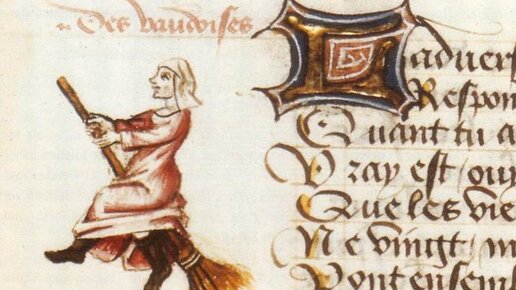 Des vaudoises
Laduers
Respon
Quant tu a
Vray est / ouy
Que les vie
Ne vingt / m
Vont ensem